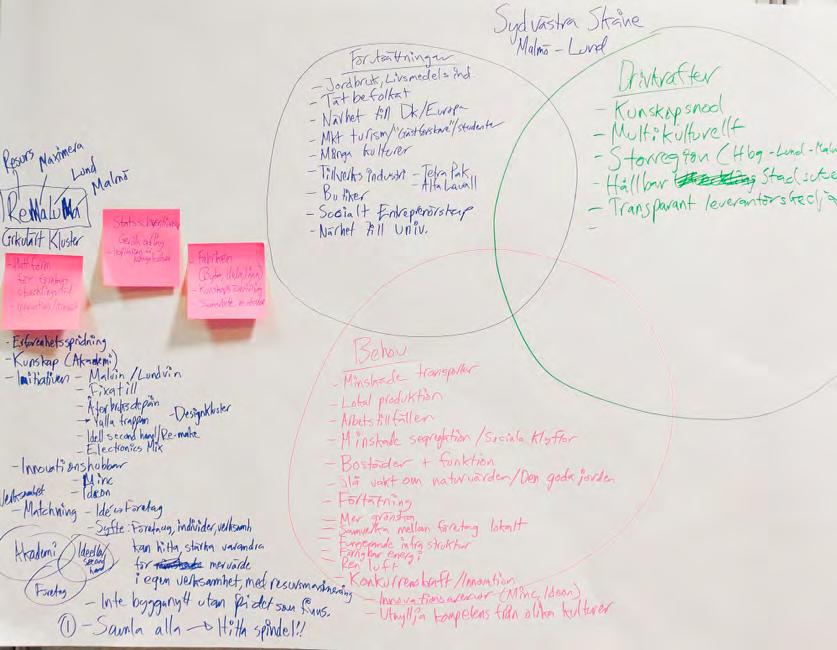 Sydvästra Skåne
Malmö - Lund
Förutsättningar
- Jordbruk, Livsmedelsind.
- Tät befolkat
- Närhet till Dk/Europa
- Mkt turism/"Gästforskare"/studenter
- Många kulturer
- Tillverkn industri - Tetra Pak
- Alfa Lavall
- Butiker
- Socialt Entreprenörskap
- Närhet till Univ.
Drivkrafter
- Kunskapsnod
- Multikulturellt
- Storregion (Hbg - Lund - Malm
- Hållbar Stad
- Transparant leverantörskedja
-
Resurs
Maximera
Lund
Malmö
ReMaLuMa
Cirkulärt Kluster
- Plattform
för företag
- Fabriken
- Erfarenhetsspridning
- Kunskap (Akademi)
- Initiativen - Malvin/Lundvin
- Fixatill
- Återbruksdepån
- Yalla trappan
- Designkluster
- Idell second hand/Re-make
- Electronics Mix
- Innovationshubbar
- Minc
- Ideon
Verksamhet
- Matchning - Idé ↔ Företag
- Syfte: Företag, individer, verksamh
kan hitta, stärka varandra
för mervärde
i egen verksamhet, med resursmaximering
Akademi
Ideella
second
hand
Företag
- Inte bygga nytt utan på det som finns.
① - Samla alla → Hitta spindel!!
Behov
- Minskade transporter
- Lokal produktion
- Arbetstillfällen
- Minskade segregation/Sociala Klyftor
- Bostäder + funktion
- Slå vakt om naturvärden/Den goda jorden
- Förtätning
- Mer grönska
- Samverka mellan företag lokalt
- Fungerande infra struktur
- Förnybar energi
- Ren luft
- Konkurrenskraft/Innovation
- Innovationsarenor (Minc, Ideon)
- Utnyttja kompetens från olika kulturer